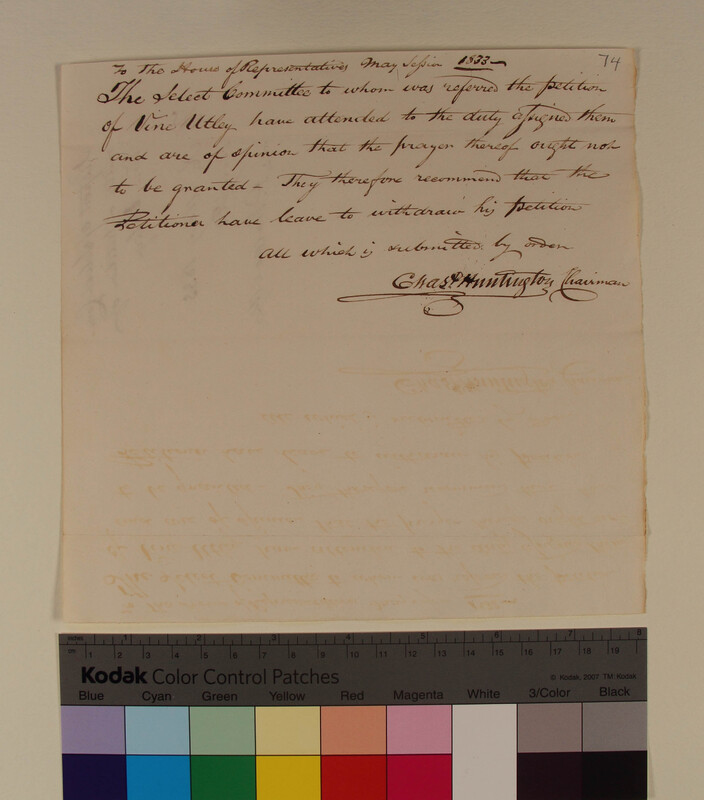 74
To The House of Representatives May Session 1833
The Select Committee to whom was referred the petition
of Vine Utley have attended to the duty assigned them
and are of opinion that the prayer thereof ought not
to be granted – They therefore recommend that the
Petitioner have leave to withdraw his petition
All which is submitted by order
Chas P Huntington Chairman
inches 1 2 3 4 5 6 7 8
cm 1 2 3 4 5 6 7 8 9 10 11 12 13 14 15 16 17 18 19
Kodak Color Control Patches
© Kodak, 2007 TM: Kodak
Blue Cyan Green Yellow Red Magenta White 3/Color Black